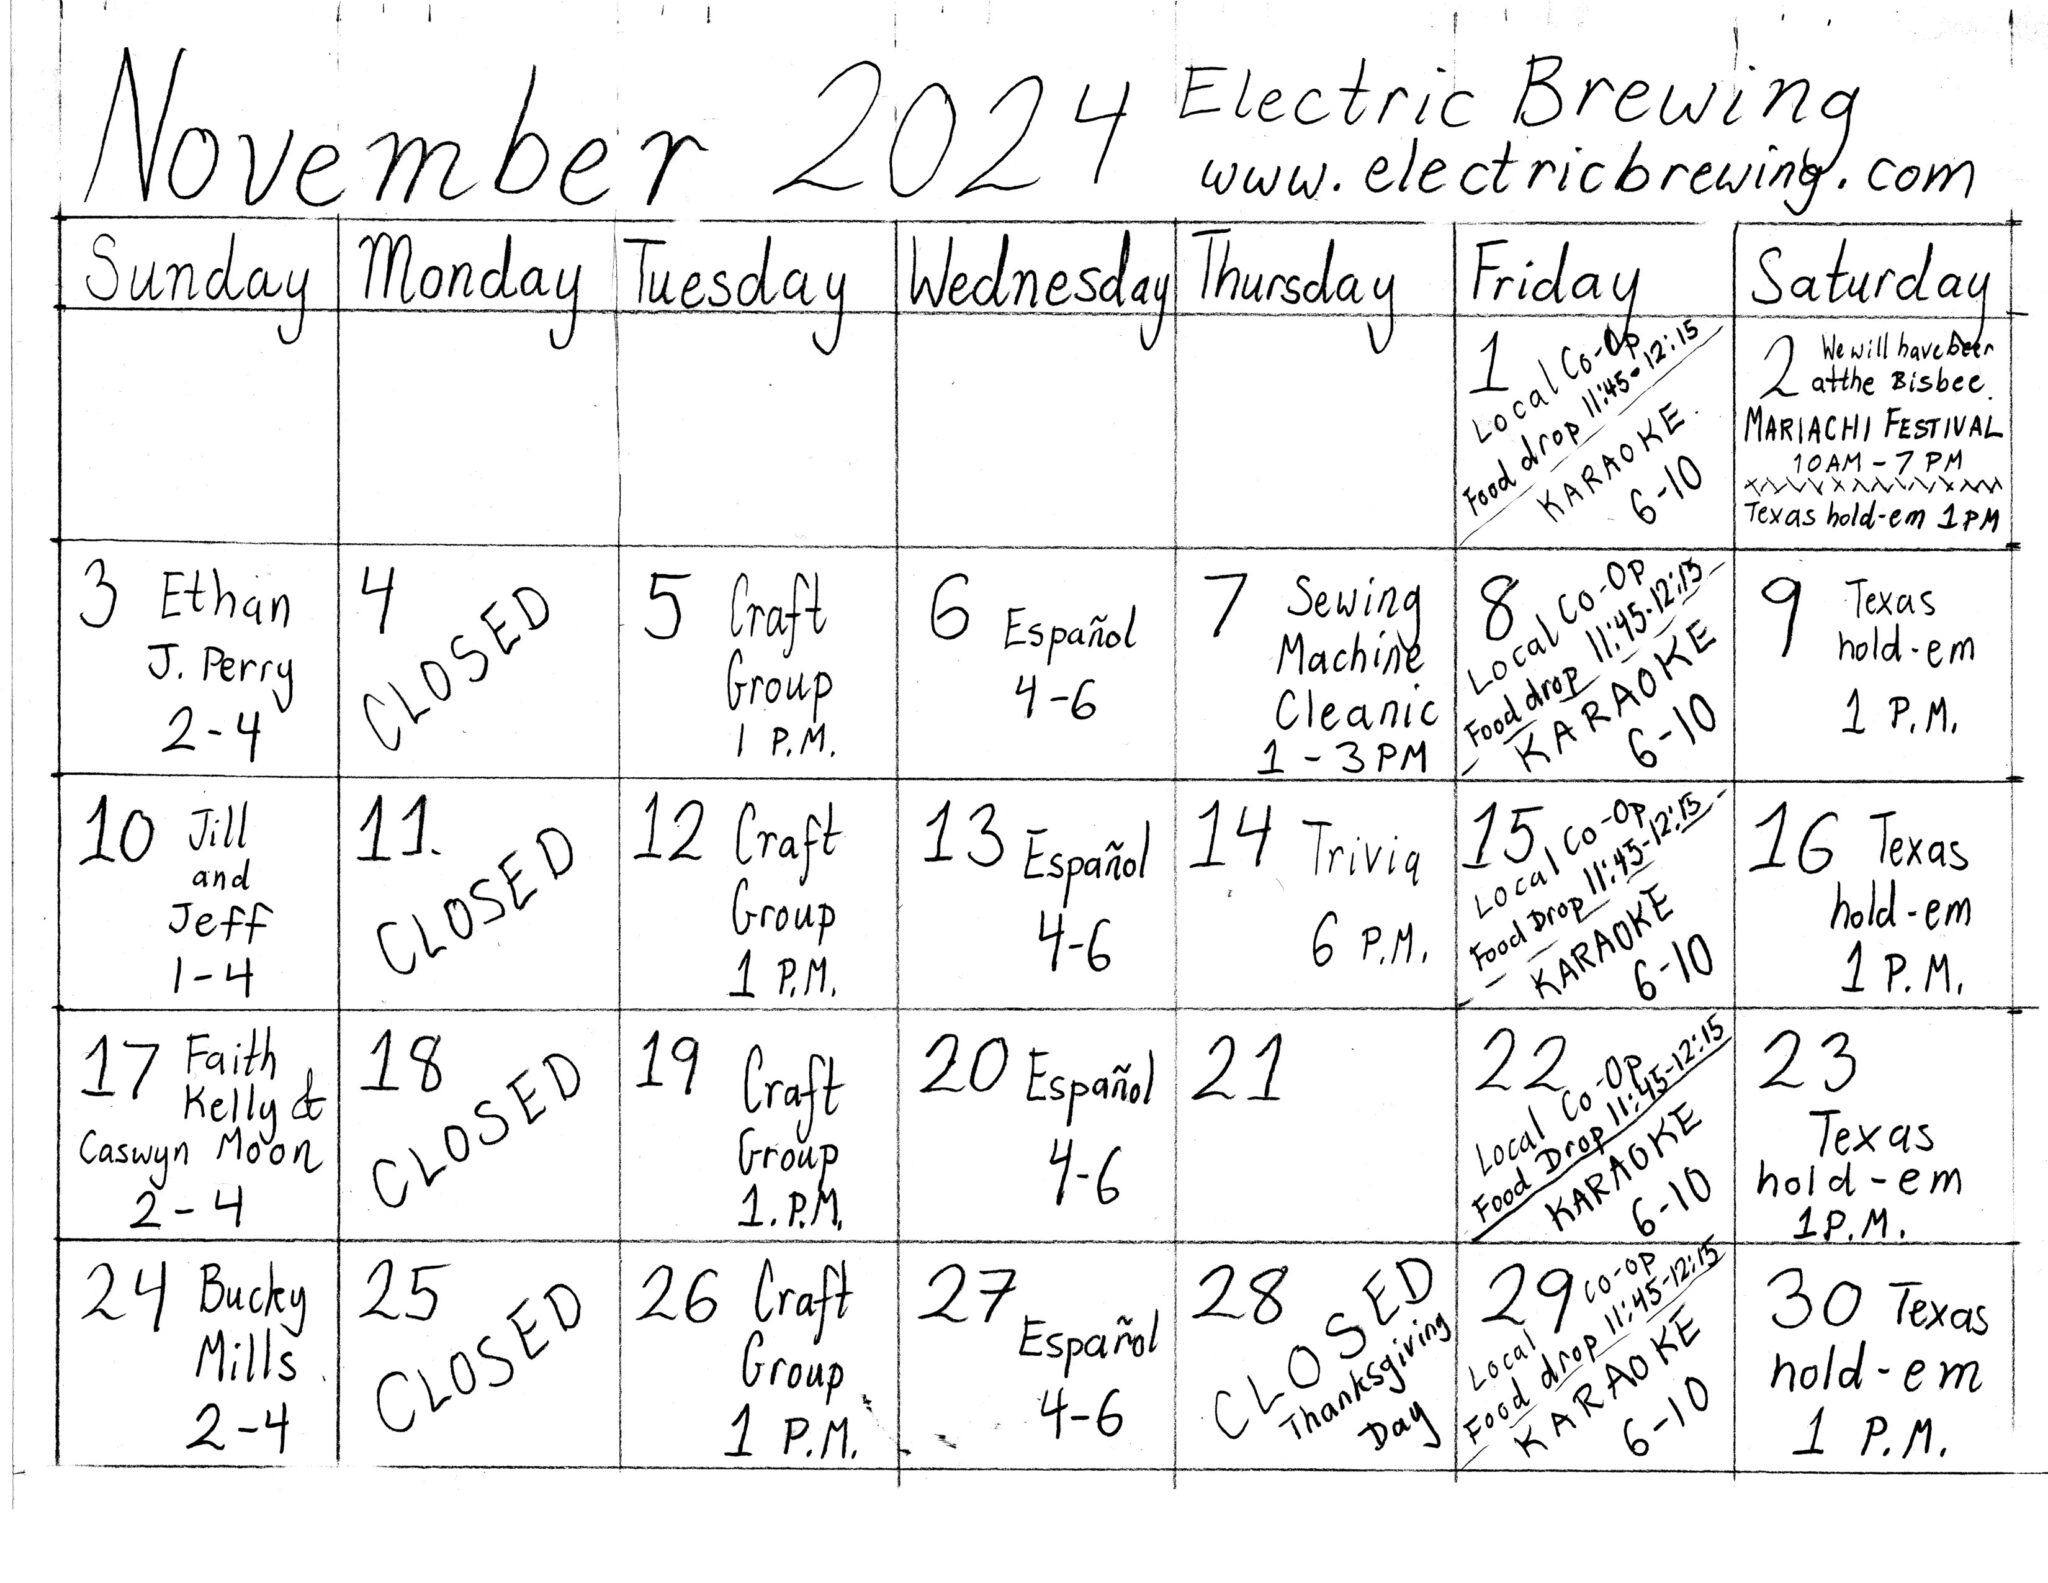 November 2024 Electric Brewing
www.electricbrewing.com
Sunday Monday Tuesday Wednesday Thursday Friday Saturday
1
Local Co-Op
Food drop 11:45-12:15
KARAOKE
6-10
2 We will have beer
at the Bisbee
MARIACHI FESTIVAL
10AM - 7 PM
Texas hold-em 1PM
3 Ethan
J. Perry
2-4
4
CLOSED
5 Craft
Group
1 P.M.
6 Español
4-6
7 Sewing
Machine
Cleanic
1 - 3 PM
8
Local Co-Op
Food drop 11:45-12:15
KARAOKE
6-10
9 Texas
hold-em
1 P.M.
10 Jill
and
Jeff
1-4
11.
CLOSED
12 Craft
Group
1 P.M.
13 Español
4-6
14 Trivia
6 P.M.
15
Local Co-Op
Food Drop 11:45-12:15
KARAOKE
6-10
16 Texas
hold-em
1 P.M.
17 Faith
Kelly &
Caswyn Moon
2-4
18
CLOSED
19 Craft
Group
1. P.M.
20 Español
4-6
21
22
Local Co-Op
Food Drop 11:45-12:15
KARAOKE
6-10
23
Texas
hold-em
1 P.M.
24 Bucky
Mills
2-4
25
CLOSED
26 Craft
Group
1 P.M.
27
Español
4-6
28
CLOSED
Thanksgiving
Day
29
Local Co-Op
Food drop 11:45-12:15
KARAOKE
6-10
30 Texas
hold-em
1 P.M.